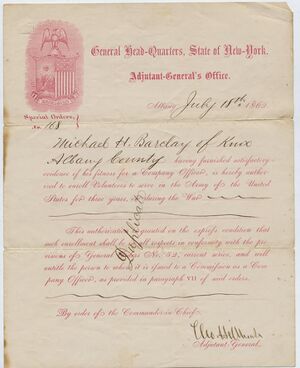 General Head-Quarters, State of New-York.
Adjutant-General's Office.
Albany, July 18th 1862
Special Orders,
No. 168
Michael H. Barclay of Knox
Albany County having furnished satisfactory
evidence of his fitness for a Company Officer, is hereby author
ized to enroll Volunteers to serve in the Army of the United
States for three years, or during the War
This authorization is granted on the express condition that
such enrollment shall in all respects in conformity with the pro
visions of General Orders No. 52, current series, and will
entitle the person to whom it is issued to a Commission as a Com
pany Officer, as provided in paragraph VII of said orders.
Duplicate
By order of the Commander in Chief,
Adjutant General.